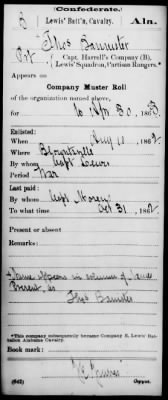 (Confederate.)
B Lewis' Batt'n, Cavalry. Ala.
Thos Bannister
Pvt { Capt. Harrell's Company (B),
Lewis' Squadron, Partisan Rangers.*
Appears on
Company Muster Roll
of the organization named above,
for to Apr 30, 1863.
Enlisted:
When Aug 11, 1862.
Where Blountsville
By whom Capt Lewis
Period War
Last paid:
By whom Capt
To what time Oct 31, 1862.
Present or absent
Remarks:
Name appears in column of Names
Present, as
Thos Banister
*This company subsequently became Company B, Lewis' Battalion Alabama Cavalry.
Book mark:
(642) Copyist.